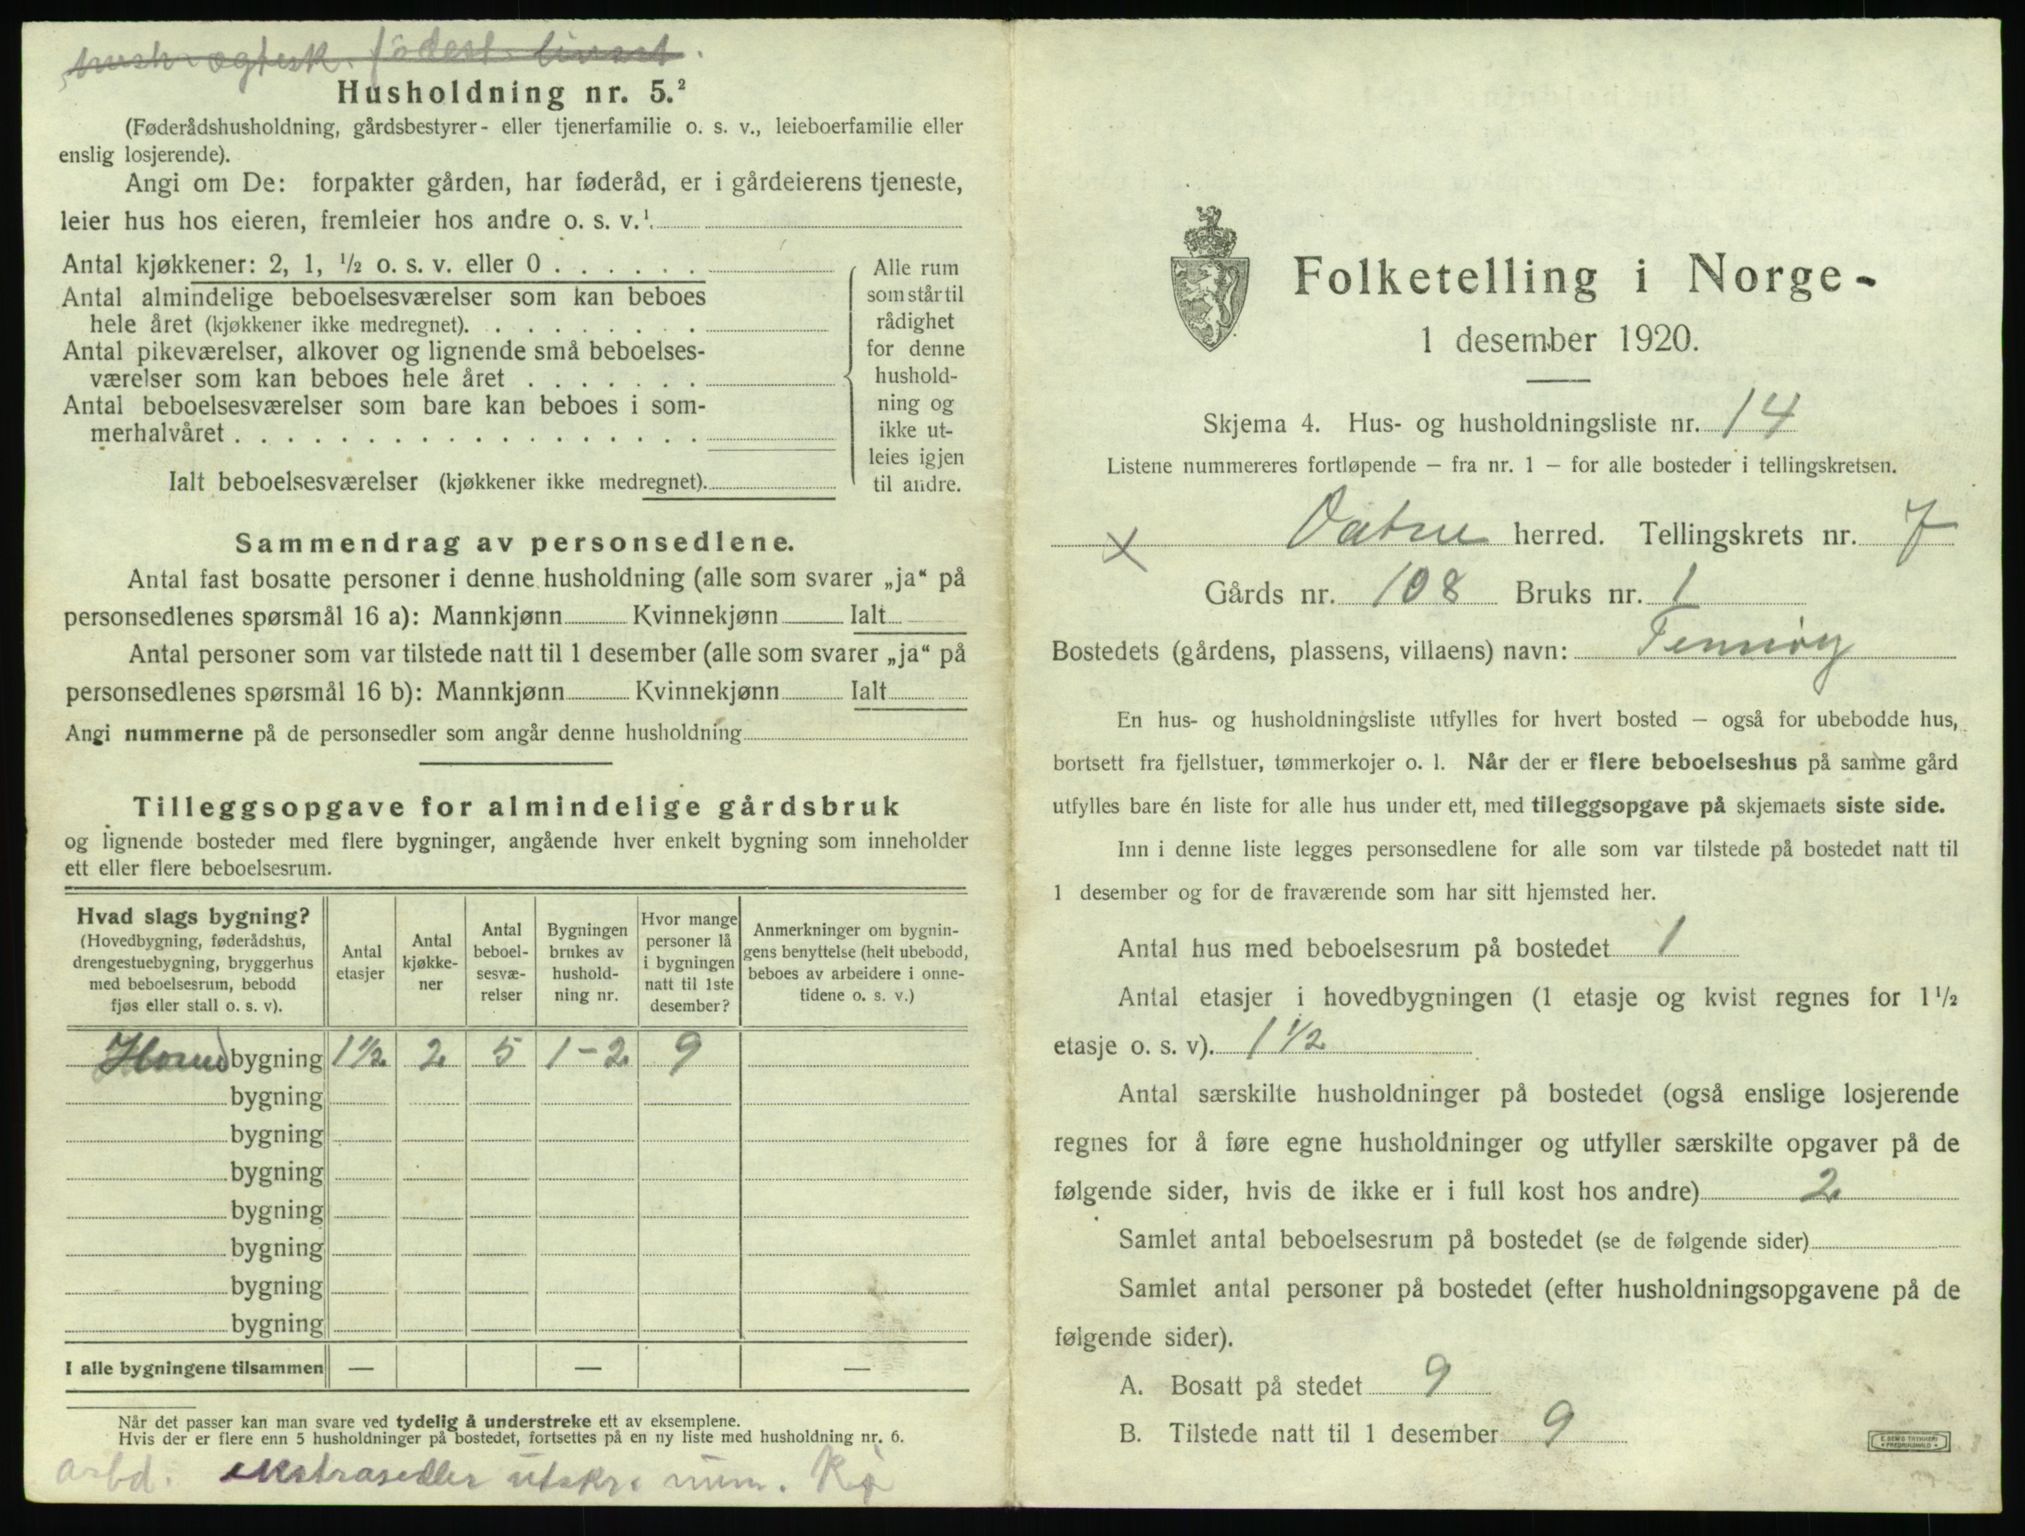 hush. ægtesk. fødest. livsst.
Husholdning nr. 5.²
(Føderådshusholdning, gårdsbestyrer- eller tjenerfamilie o. s. v., leieboerfamilie eller
enslig losjerende).
Angi om De: forpakter gården, har føderåd, er i gårdeierens tjeneste,
leier hus hos eieren, fremleier hos andre o. s. v.¹
Antal kjøkkener: 2, 1, ½ o. s. v. eller 0 . . . . . .
Antal almindelige beboelsesværelser som kan beboes
hele året (kjøkkener ikke medregnet). . . . . . . . .
Antal pikeværelser, alkover og lignende små beboelses-
værelser som kan beboes hele året . . . . . . .
Antal beboelsesværelser som bare kan beboes i som-
merhalvåret . . . . . . . . . . . . . . . . . .
Ialt beboelsesværelser (kjøkkener ikke medregnet).
Alle rum
som står til
rådighet
for denne
hushold-
ning og
ikke ut-
leies igjen
til andre.
Sammendrag av personsedlene.
Antal fast bosatte personer i denne husholdning (alle som svarer „ja“ på
personsedlenes spørsmål 16 a): Mannkjønn Kvinnekjønn Ialt
Antal personer som var tilstede natt til 1 desember (alle som svarer „ja“ på
personsedlenes spørsmål 16 b): Mannkjønn Kvinnekjønn Ialt
Angi nummerne på de personsedler som angår denne husholdning
Tilleggsopgave for almindelige gårdsbruk
og lignende bosteder med flere bygninger, angående hver enkelt bygning som inneholder
ett eller flere beboelsesrum.
Hvad slags bygning?
(Hovedbygning, føderådshus,
drengestuebygning, bryggerhus
med beboelsesrum, bebodd
fjøs eller stall o. s. v).
Antal
etasjer
Antal
kjøkke-
ner
Antal
beboel-
sesvæ-
relser
Bygningen
brukes av
hushold-
ning nr.
Hvor mange
personer lå
i bygningen
natt til 1ste
desember?
Anmerkninger om bygnin-
gens benyttelse (helt ubebodd,
beboes av arbeidere i onne-
tidene o. s. v.)
Hovedbygning 1½ 2 5 1-2 9
bygning
bygning
bygning
bygning
bygning
bygning
bygning
I alle bygningene tilsammen — — —
Når det passer kan man svare ved tydelig å understreke ett av eksemplene.
Hvis der er flere enn 5 husholdninger på bostedet, fortsettes på en ny liste med husholdning nr. 6.
arbd. ekstrasedler utskr. num. Rø
Folketelling i Norge
1 desember 1920.
Skjema 4. Hus- og husholdningsliste nr. 14
Listene nummereres fortløpende – fra nr. 1 – for alle bosteder i tellingskretsen.
x Vatne herred. Tellingskrets nr. 7
Gårds nr. 108 Bruks nr. 1
Bostedets (gårdens, plassens, villaens) navn: Tennøy
En hus- og husholdningsliste utfylles for hvert bosted – også for ubebodde hus,
bortsett fra fjellstuer, tømmerkojer o. l. Når der er flere beboelseshus på samme gård
utfylles bare én liste for alle hus under ett, med tilleggsopgave på skjemaets siste side.
Inn i denne liste legges personsedlene for alle som var tilstede på bostedet natt til
1 desember og for de fraværende som har sitt hjemsted her.
Antal hus med beboelsesrum på bostedet 1
Antal etasjer i hovedbygningen (1 etasje og kvist regnes for 1½
etasje o. s. v). 1½
Antal særskilte husholdninger på bostedet (også enslige losjerende
regnes for å føre egne husholdninger og utfyller særskilte opgaver på de
følgende sider, hvis de ikke er i full kost hos andre) 2
Samlet antal beboelsesrum på bostedet (se de følgende sider)
Samlet antal personer på bostedet (efter husholdningsopgavene på de
følgende sider).
A. Bosatt på stedet 9
B. Tilstede natt til 1 desember 9